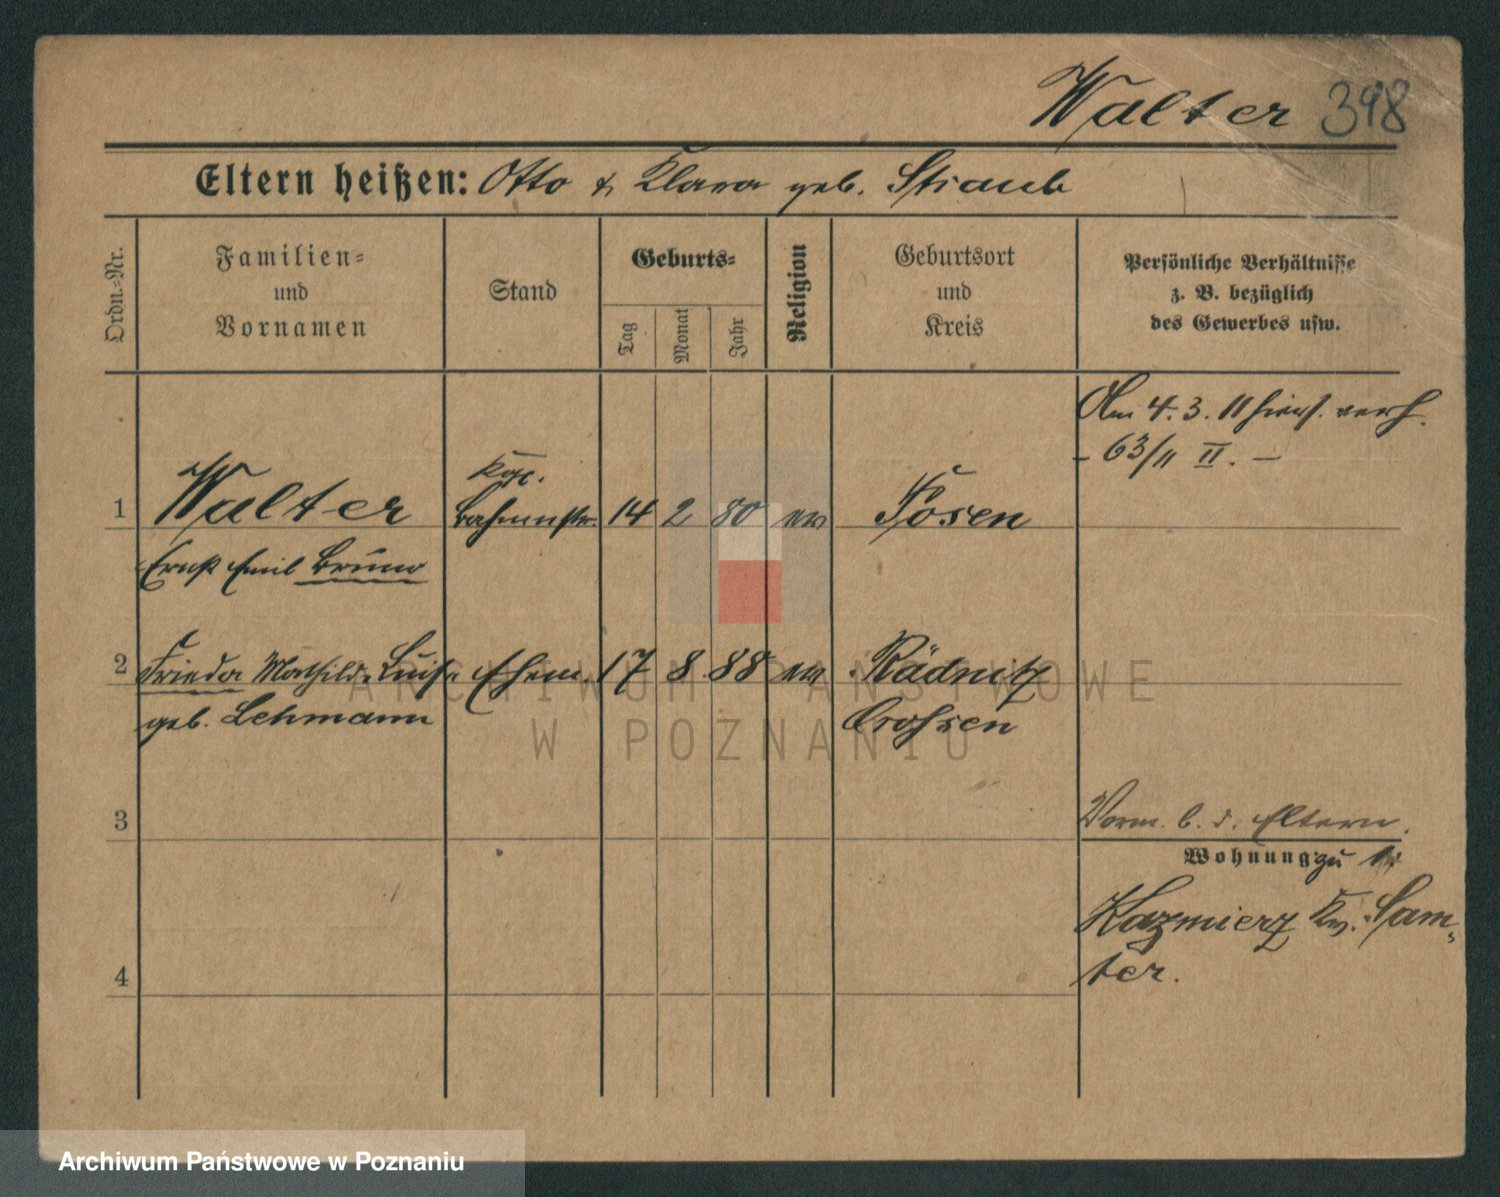 Walter 398
Eltern heißen: Otto & Klara geb. Straub
Ordn.-Nr.
Familien- und Vornamen
Stand
Geburts-
Tag
Monat
Jahr
Religion
Geburtsort und Kreis
Persönliche Verhältnisse z. B. bezüglich des Gewerbes usw.
Am 4.3.11 hiers. verh.
- 63/11 II. -
1 Walter
14 2 80 ev Posen
Ernst Emil Bruno
2 Frieda Mathilde Luise Ehefr. 17 8 88 ev Rädnitz
geb. Lehmann Crossen
3
Vorm. b. d. Eltern.
Wohnung zu 1:
Kazmierz Kr. Sam-
4 ter.
ARCHIWUM PAŃSTWOWE
W POZNANIU
Archiwum Państwowe w Poznaniu